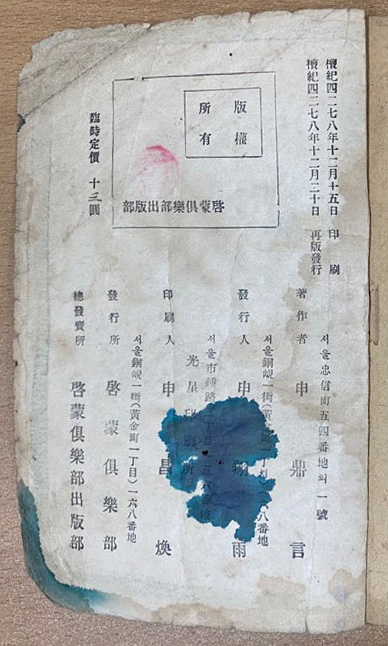 檀紀四二七八年十二月十五日 印刷
檀紀四二七八年十二月二十日 再版發行
版權
所有
啓蒙俱樂部出版部
臨時定價 十三圓
서울忠信町五四番地의一號
著作者 申鼎言
서울銅峴一街(黃金町一丁目)一六八番地
發行人 申 雨
서울市鍾路
光星印刷所
印刷人 申昌煥
서울銅峴一街(黃金町一丁目)一六八番地
發行所 啓蒙俱樂部
總發賣所 啓蒙俱樂部出版部